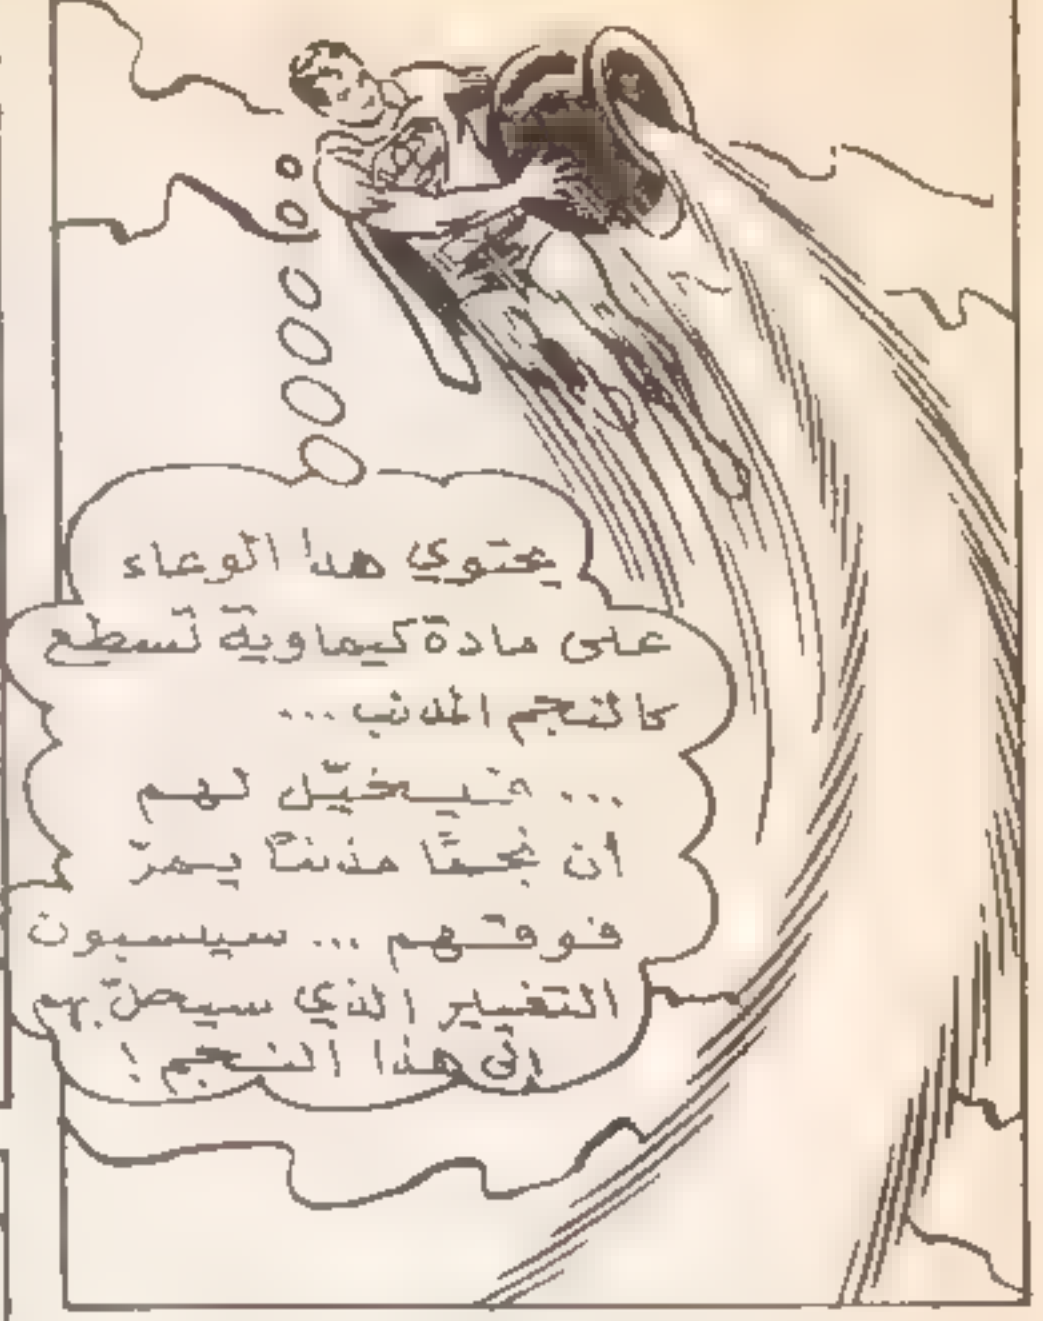 يحتوي هذا الوعاء
على مادة كيماوية تسطع
كالنجم المذنب ...
... فيخيّل لهم
أن نجمًا مذنبًا يمرّ
فوقهم ... سينسبون
التغيير الذي سيحلّ بهم
إلى هذا النجم !